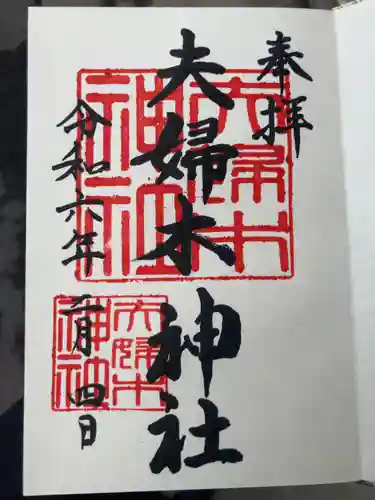 奉拝
夫婦木神社
令和六年 二月 四日
夫婦木
神社
夫婦木
神社